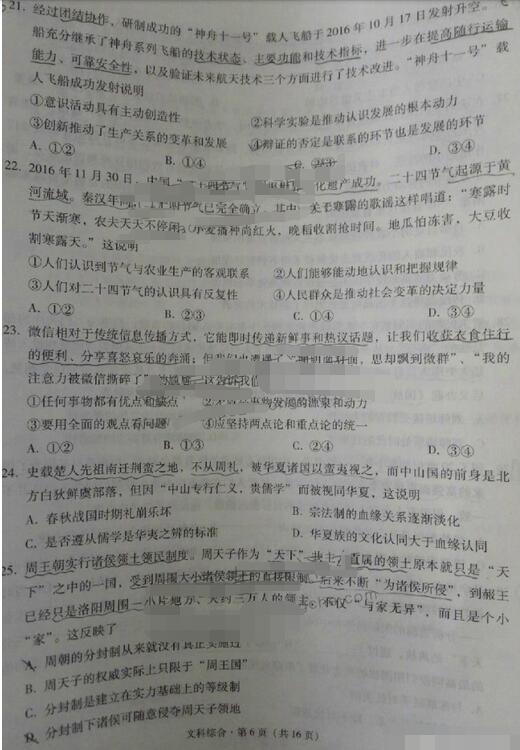 21. 经过团结协作、研制成功的“神舟十一号”载人飞船于2016年10月17日发射升空。飞
船充分继承了神舟系列飞船的技术状态、主要功能和技术指标，进一步在提高随行运输
能力、可靠安全性，以及验证未来航天技术三个方面进行了技术改进。“神舟十一号”载
人飞船成功发射说明
①意识活动具有主动创造性 ②科学实验是推动认识发展的根本动力
③创新推动了生产关系的变革和发展 ④辩证的否定是联系的环节也是发展的环节
A. ①② B. ①④ C. ②③ D. ③④
22. 2016年11月30日，中国 化遗产成功。二十四节气起源于黄
河流域。秦汉年间 节气已完全确立。其中，关于寒露的歌谣这样唱道：“寒露时
节天渐寒，农夫天天不停闲。小麦播种尚红火，晚稻收割抢时间。地瓜怕冻害，大豆收
割寒露天。”这说明
①人们认识到节气与农业生产的客观联系 ②人们能够能动地认识和把握规律
③人们对二十四节气的认识具有反复性 ④人民群众是推动社会变革的决定力量
A. ①② B. ②③ C. ①④ D. ③④
23. 微信相对于传统信息传播方式，它能即时传递新鲜事和热议话题，让我们收获衣食住行
的便利、分享喜怒哀乐的奔涌；但 思却飘到微群”、“我的
注意力被微信撕碎了” 告诉我们
①任何事物都有优点和缺点 事物发展的源泉和动力
③要用全面的观点看问题 ④应坚持两点论和重点论的统一
A. ①② B. ①③ C. ②④ D. ③④
24. 史载楚人先祖南迁荆蛮之地，不从周礼，被华夏诸国以蛮夷视之，而中山国的前身是北
方白狄鲜虞部落，但因“中山专行仁义，贵儒学”而被视同华夏，这说明
A. 春秋战国时期礼崩乐坏 B. 宗法制的血缘关系逐渐淡化
C. 是否遵从儒学是华夷之辨的标准 D. 华夏族的文化认同大于血缘认同
25. 周王朝实行诸侯领土领民制度。周天子作为“天下”共主，直属的领土原本就只是“天
下”之中的一国，受到周围大小诸侯领土的直接限制。后来不断“为诸侯所侵”，到赧王
已经只是洛阳周围一小片地方、大约三万人的领主，不仅“与家无异”，而且是个小
“家”。这反映了
A. 周朝的分封制从来就没有真正实施过
B. 周天子的权威实际上只限于“周王国”
C. 分封制是建立在实力基础上的等级制
D. 分封制下诸侯可随意侵夺周天子领地
文科综合·第6页（共16页）